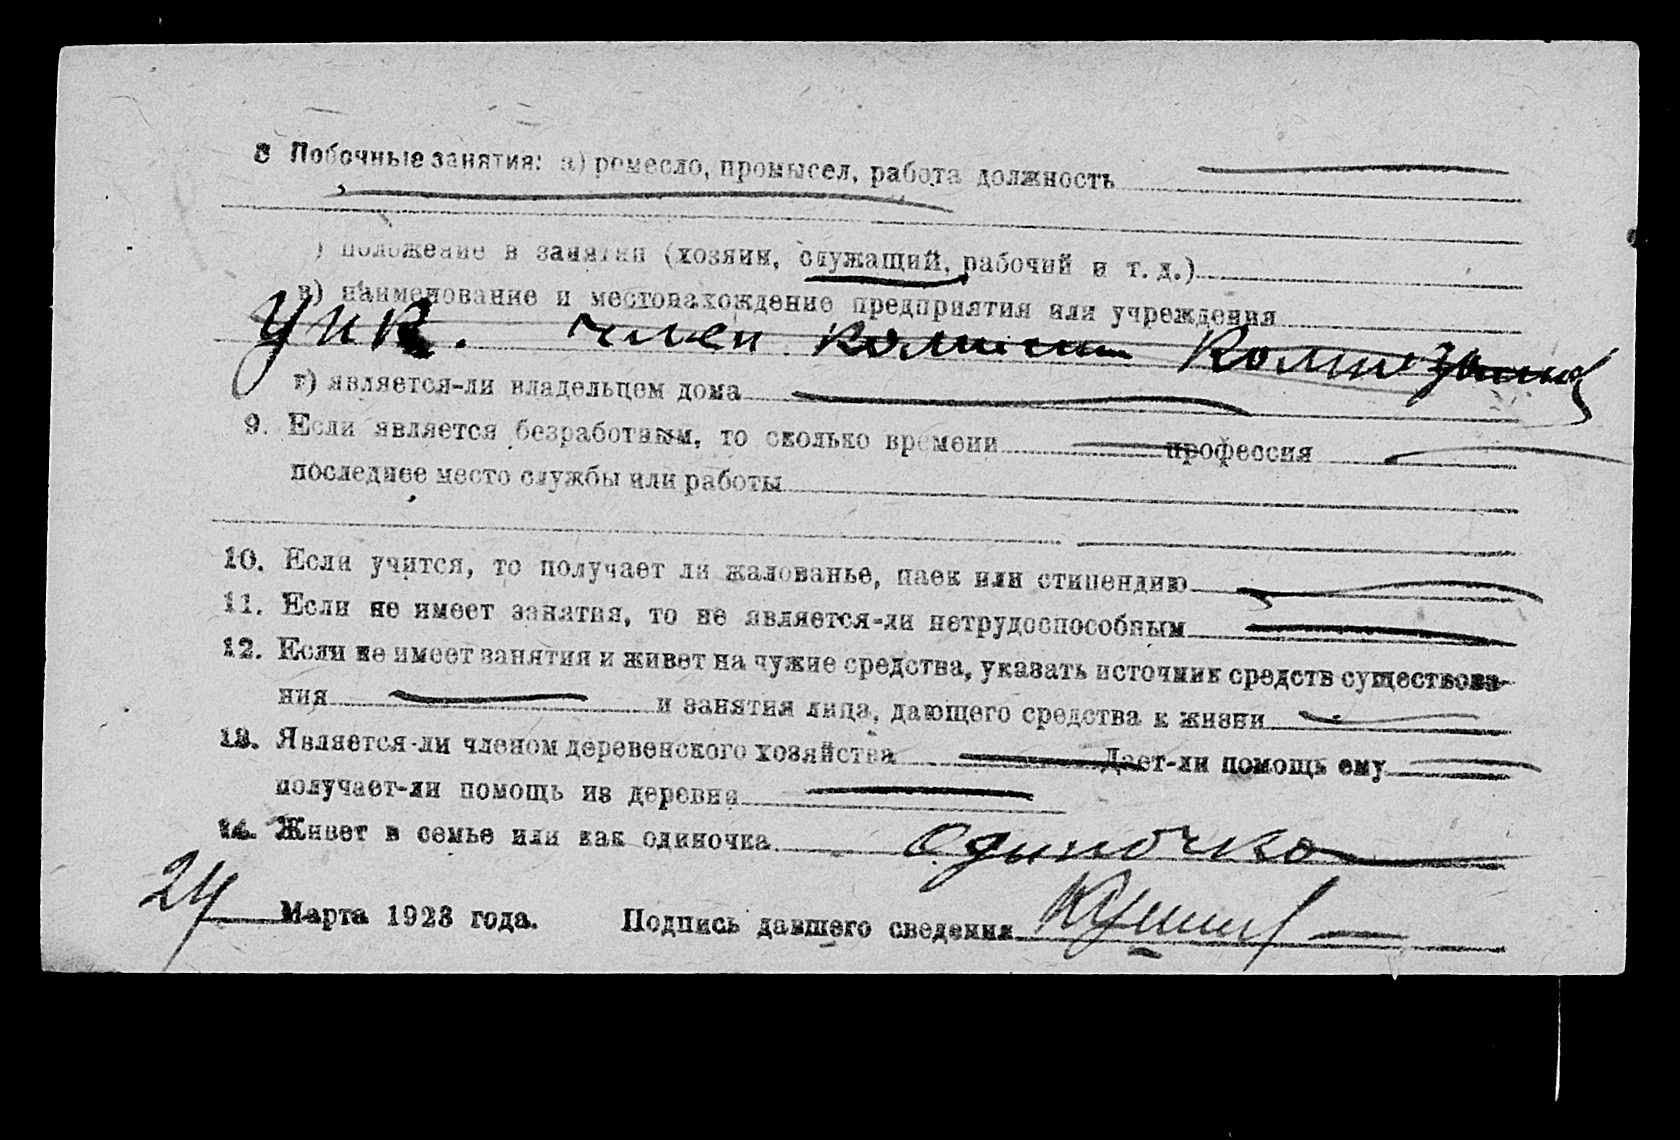 8 Побочные занятия: а) ремесло, промысел, работа должность
) положение в занятии (хозяин, служащий, рабочий и т. д.)
в) наименование и местонахождение предприятия или учреждения
член комиссии
г) является-ли владельцем дома
9. Если является безработным, то сколько времени профессия
последнее место службы или работы
10. Если учится, то получает ли жалованье, паек или стипендию
11. Если не имеет занятия, то не является-ли нетрудоспособным
12. Если не имеет занятия и живет на чужие средства, указать источник средств существова-
ния и занятия лица, дающего средства к жизни
13. Является-ли членом деревенского хозяйства Дает-ли помощь ему
получает-ли помощь из деревни
14. Живет в семье или как одиночка одиночка
24 Марта 1923 года. Подпись давшего сведения